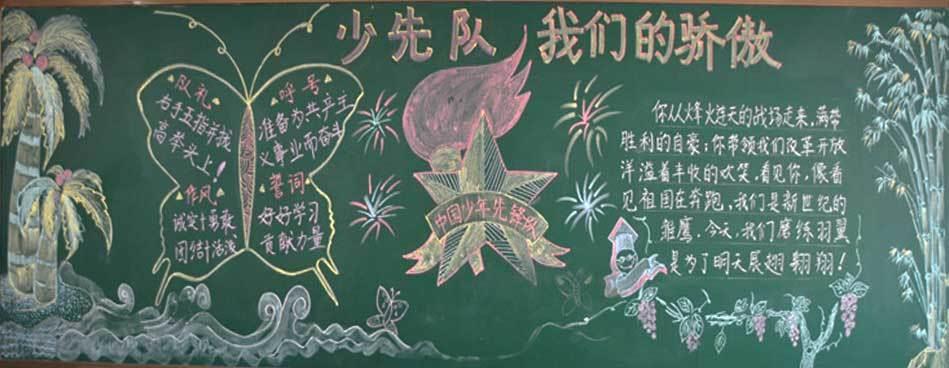 少先队 我们的骄傲
队礼
右手五指并拢
高举头上!
作风
诚实勇敢
团结活泼
呼号
准备为共产主
义事业而奋斗
誓词
好好学习
贡献力量
中国少年先锋队
你从烽火连天的战场走来,满带
胜利的自豪;你带领我们改革开放
洋溢着丰收的欢笑,看见你,像看
见祖国在奔跑,我们是新世纪的
雏鹰,今天,我们磨练羽翼
是为了明天展翅翱翔!